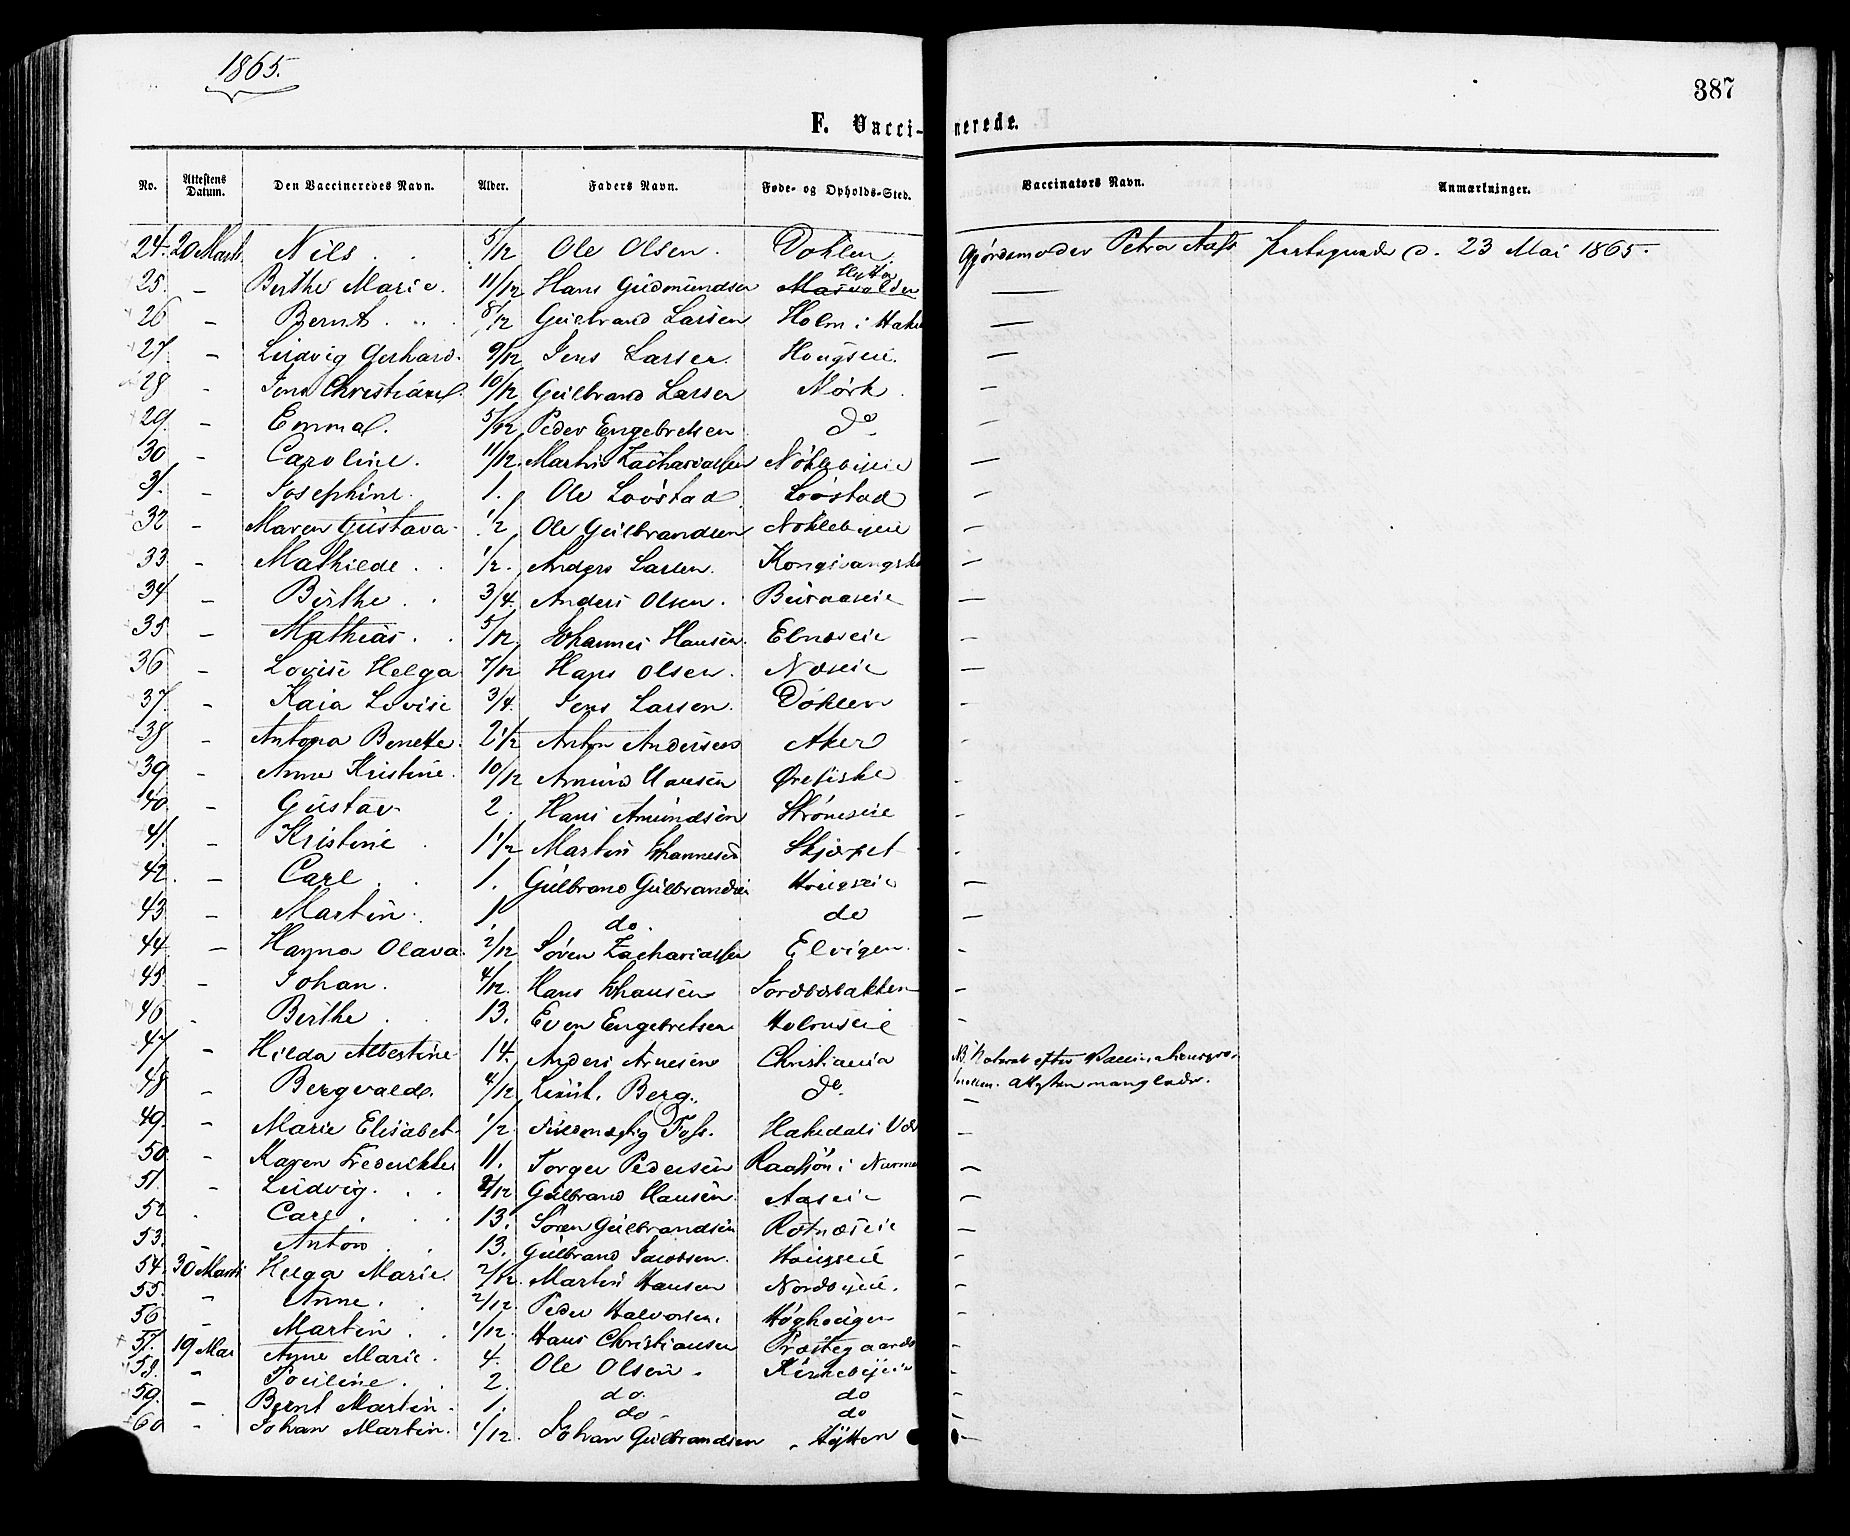 1865.
387
F. Vacci-nerede.
No. Attestens Datum. Den Vaccineredes Navn. Alder. Faders Navn. Føde- og Opholds-Sted. Vaccinators Navn. Anmærkninger.
24. 20 Marts Nils . . 5/12 Ole Olsen. Døhlen. Gjordemoder Petra Aass d. 23 Mai 1865.
25. - Berthe Marie. 11/12 Hans Gudmundsen Hytten —
26 - Bernt . . 8/12 Gulbrand Larsen Holm i —
27. - Ludvig Gerhard. 9/12 Jens Larsen. Hougseie. —
28 - Jens Christian 10/12 Gulbrand Larsen Mørk. -
29. - Emma 5/12 Peder Engebretsen do -
30 - Caroline. 11/12. Martin Zachariassen Nøklebyeie —
31. - Josephine. 1. Ole Lövstad Lövstad -
32 - Maren Gustava. 1/2 Ole Gulbrandsen Nøklebyeie -
33 - Mathilde . . 1/2. Anders Larsen. -
34 - Berthe . . 3/4. Anders Olsen. Buraaseie —
35 - Mathias . . 5/12. Johannes Hansen. Elnæseie -
36 - Lovise Helga 7/12 Hans Olsen. Næseie -
37. - Kaia Lovise 3/4. Jens Larsen. Døhlen -
38 - Antona Benette. 2 1/2 Anton Andersen Aker -
39 - Anne Kristine. 10/12 Amund Hansen Ørefiske -
40. - Gustav 2. Hans Amundsen Strømseie -
41. - Kristine 1 1/2 Martin Johannesen Skjærpet -
42. - Carl . . 1. Gulbrand Gulbrandsen Hougseie —
43 - Martin. 1 do. do —
44 - Hanna Olava. 2/12 Søren Zachariassen Elvigen. -
45. - Johan. 4/12. Hans Johansen -
46 . Berthe . . 13. Even Engebretsen Holmseie -
47 - Hilda Albertine 14. Anders Arnesen Christiania NB. Noteret efter Vaccinationspro-
48 - Bergvald. 4/12 Leut. Berg. do. tocollen. Attesten manglede. —
49. - Marie Elisabet 1/2 Fuldmægtig Foss. Hakedals Værk —
50 - Karen Frederikke 11. Torger Pedersen —
51. - Ludvig. . . 8/12 Gulbrand Hansen. Aaseie —
52 . Carl . . . 13. Søren Gulbrandsen Rotnæseie -
53. - Anton . . 13. Gulbrand Jacobsen. Hougseie -
54. 30 Marts Helga Marie. 2/12. Martin Hansen Nordbyeie. -
55. - Anne. . 2/12. Peder Halvorsen. -
56 - Martin . . 1/12. Hans Christiansen Præstegaards -
57. 19 Mai Anne Marie. 4. Ole Olsen. Kirkebyeie -
58. - Pouline . . 2. do. do -
59. - Bernt Martin. 1. do. do -
60 - Johan Martin. 1/12. Johan Gulbrandsen Hytten -